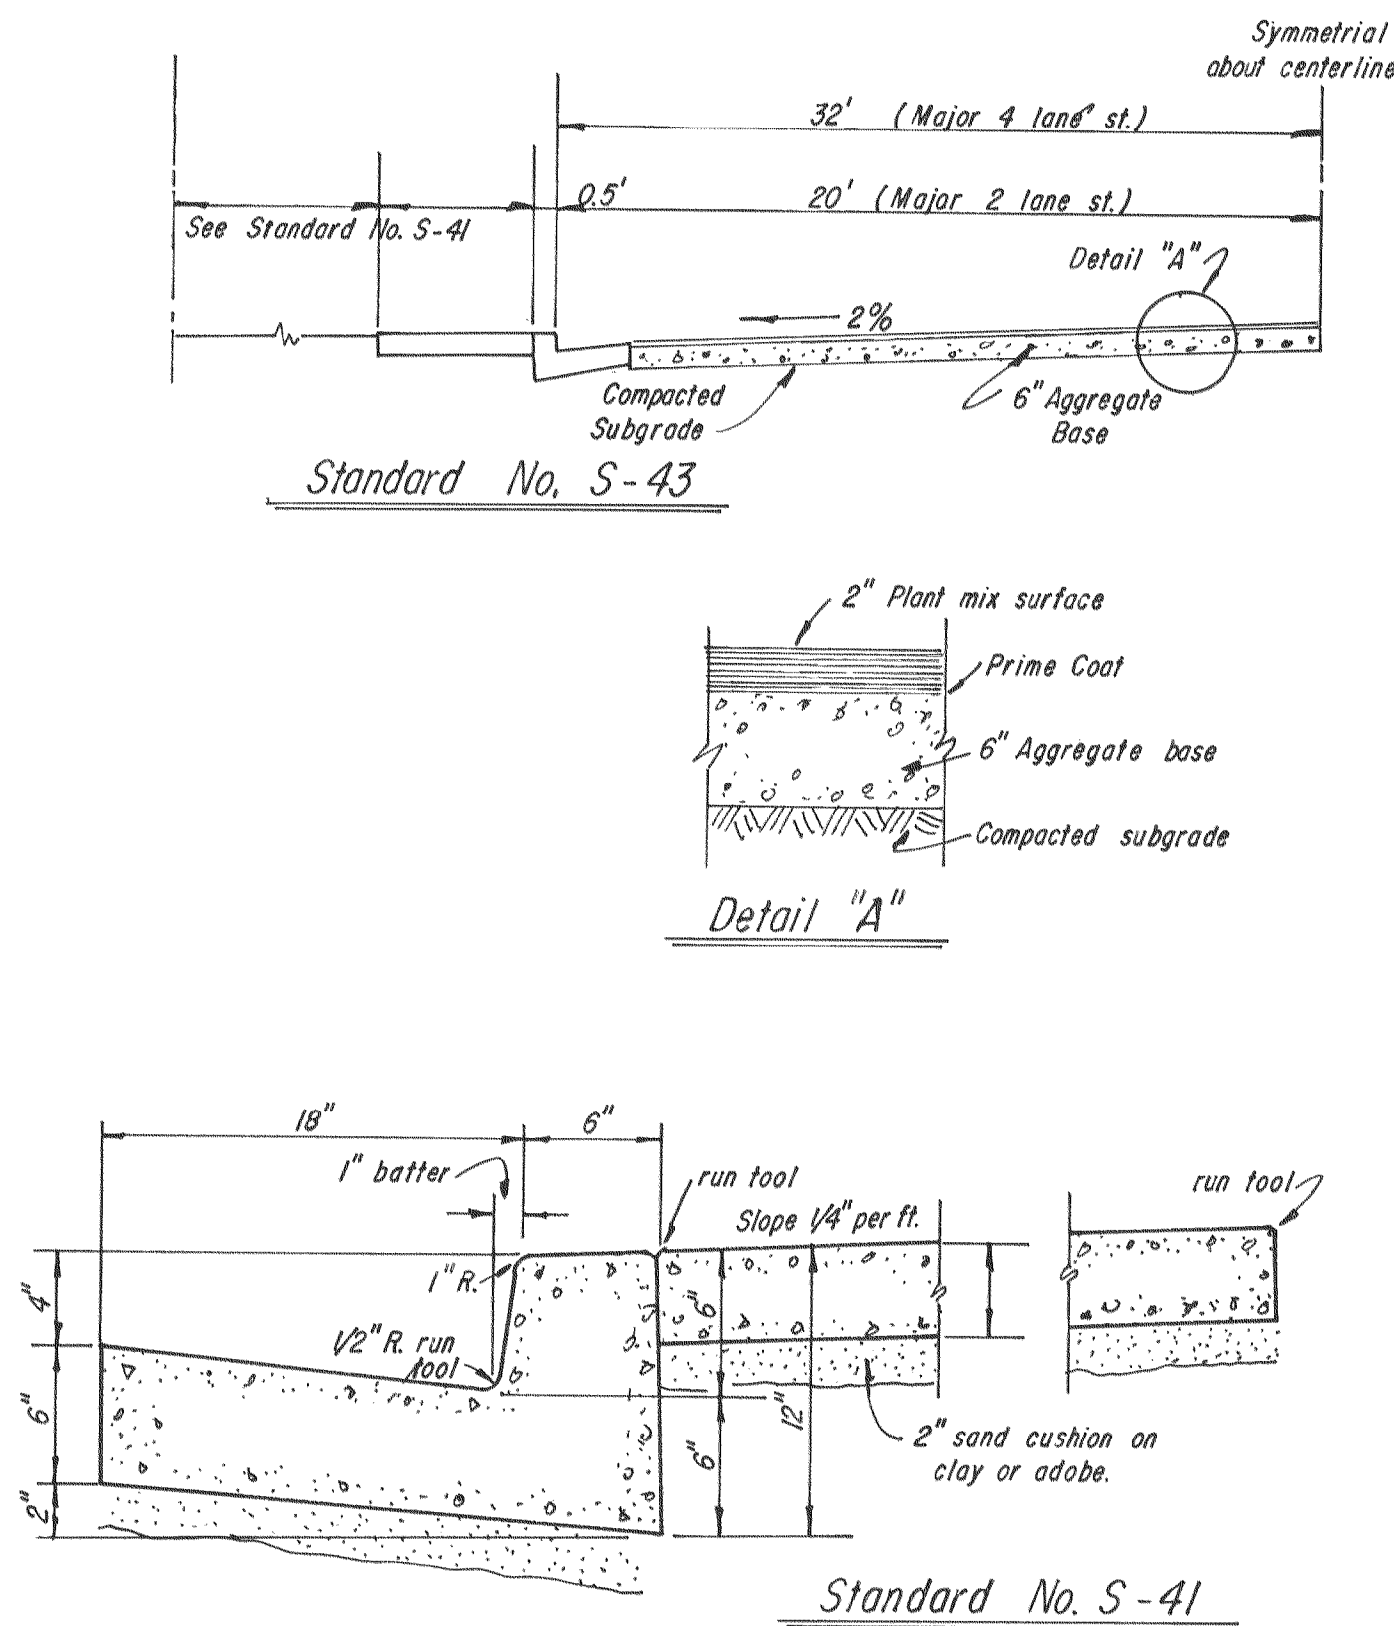 Symmetrial
about centerline
32' (Major 4 lane st.)
0.5'
20' (Major 2 lane st.)
See Standard No. S-41
Detail "A"
2%
Compacted
Subgrade
6" Aggregate
Base
Standard No. S-43
2" Plant mix surface
Prime Coat
6" Aggregate base
Compacted subgrade
Detail "A"
18"
6"
1" batter
run tool
Slope 1/4" per ft.
run tool
1" R.
4"
6"
1/2" R. run
tool
6"
12"
6"
2"
2" sand cushion on
clay or adobe.
Standard No. S-41